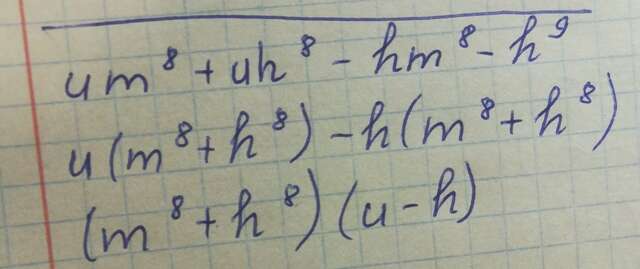 um⁸ + uh⁸ - hm⁸ - h⁹
u(m⁸ + h⁸) - h(m⁸ + h⁸)
(m⁸ + h⁸)(u - h)